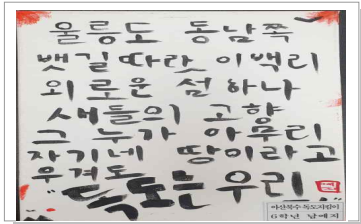 울릉도 동남쪽
뱃길따라 이백리
외로운 섬 하나
새들의 고향
그 누가 아무리
자기네 땅이라고
우겨도
독도는 우리
6학년